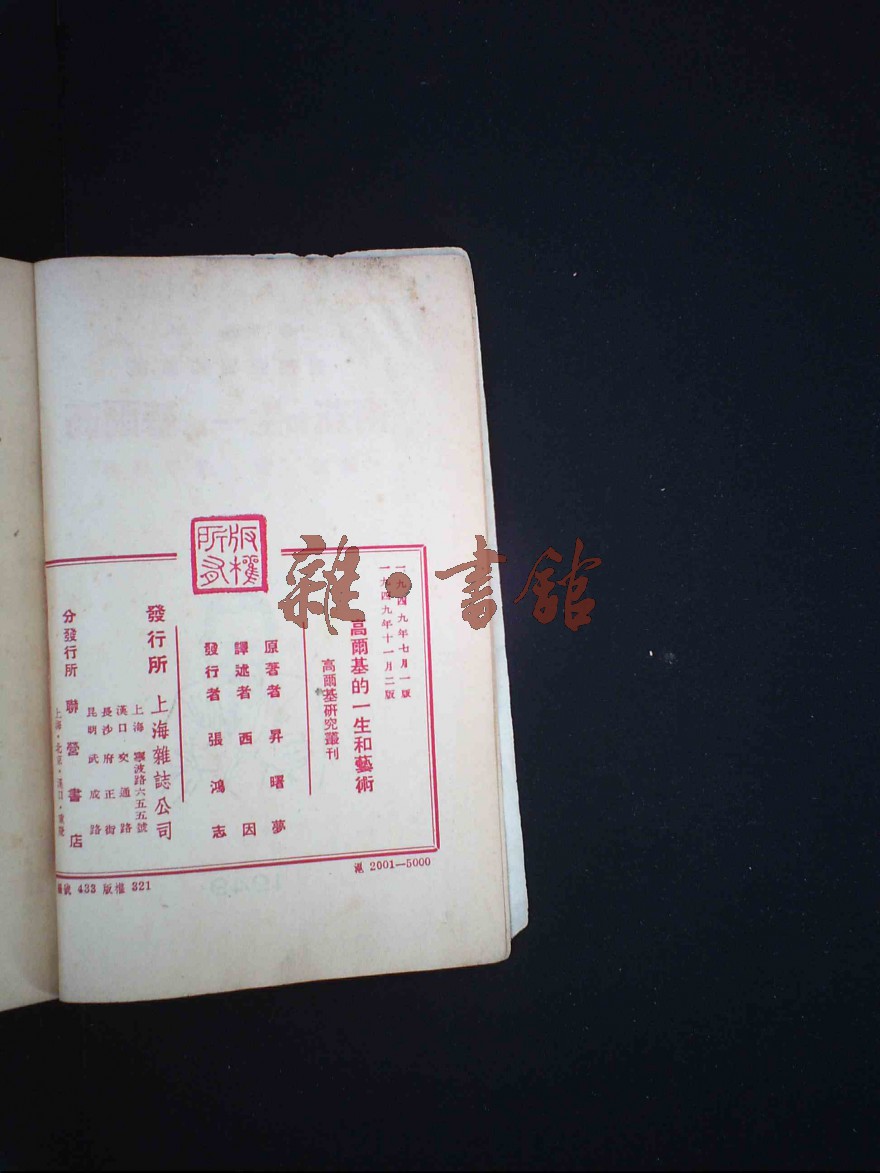 一九四九年七月一版
一九四九年十一月二版
高爾基的一生和藝術
高爾基研究叢刊
原著者 昇曙夢
譯述者 西因
發行者 張鴻志
版權所有
發行所 上海雜誌公司
上海 寧波路六五五號
漢口 交通路
長沙 府正街
昆明 武成路
分發行所 聯營書店
上海·北京·漢口·重慶
滬 2001—5000
號 433 版權 321
雜·書舘